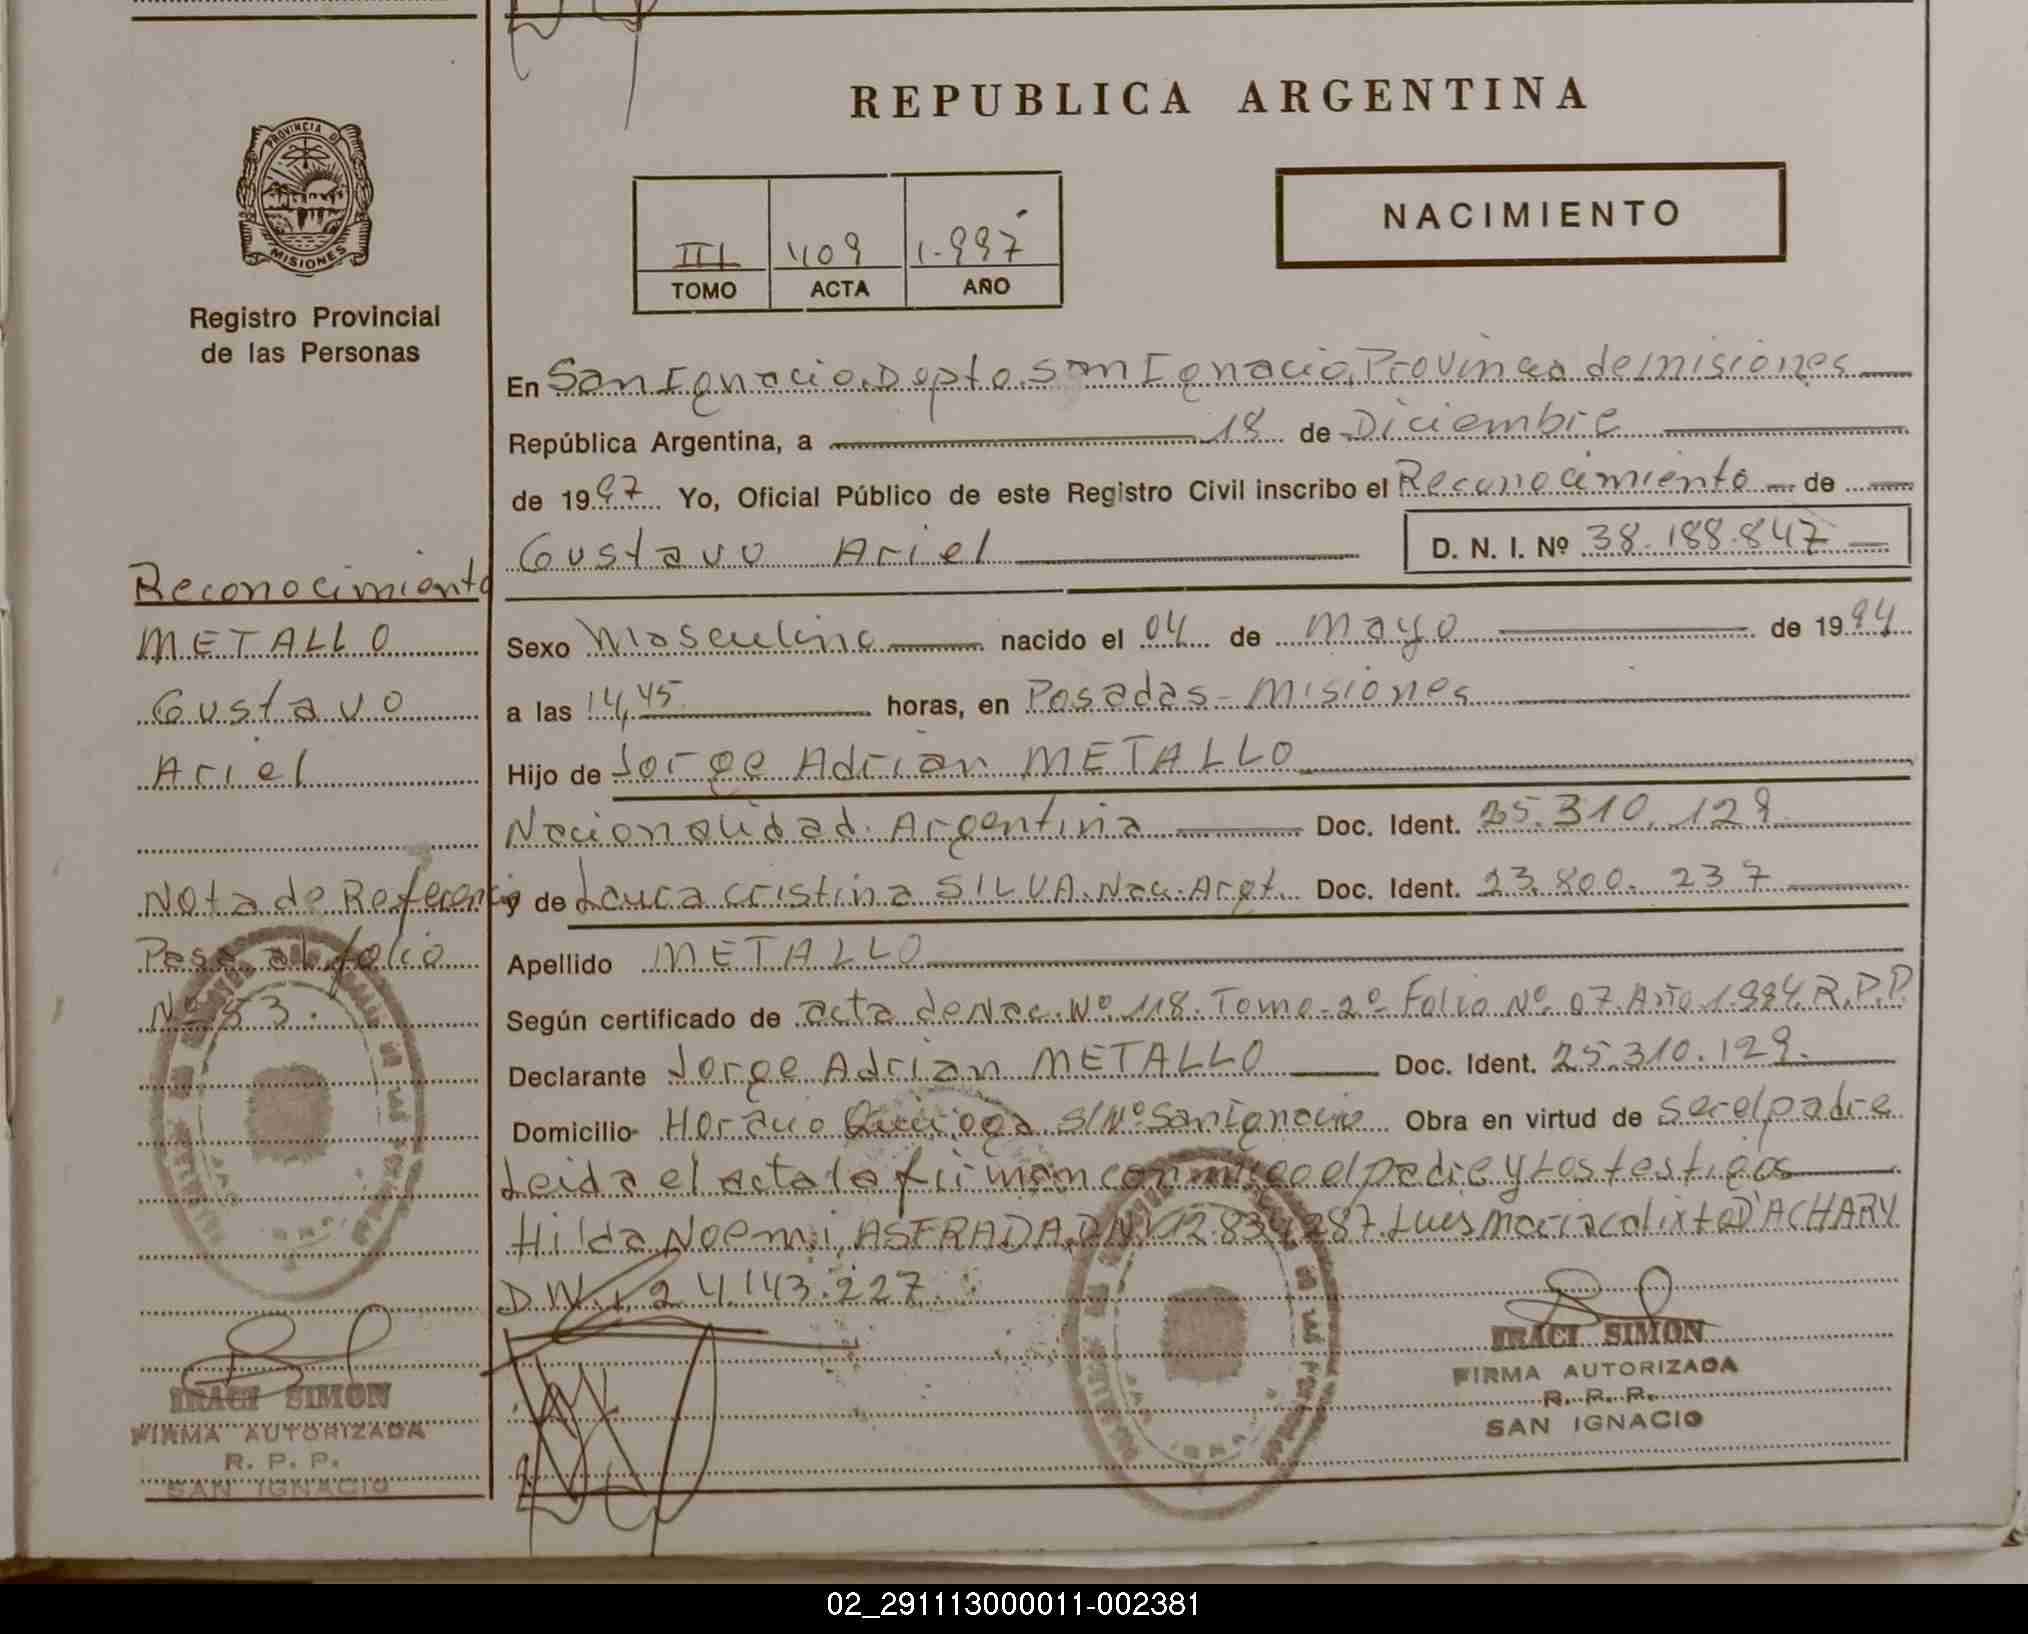 REPUBLICA ARGENTINA
PROVINCIA DE
MISIONES
Registro Provincial
de las Personas
III 409 1.997
TOMO ACTA AÑO
NACIMIENTO
En San Ignacio, Dpto. San Ignacio, Provincia de misiones
República Argentina, a 18 de Diciembre
de 1997 Yo, Oficial Público de este Registro Civil inscribo el Reconocimiento de
Gustavo Ariel D. N. I. Nº 38.188.847
Reconocimiento
METALLO
Gustavo
Ariel
Nota de Referencia
Pasa al folio
Nº 53.
Sexo Masculino nacido el 04 de mayo de 1994
a las 14,45 horas, en Posadas - Misiones
Hijo de Jorge Adrian METALLO
Nacionalidad Argentina Doc. Ident. 25.310.129
y de Laura cristina SILVA. Nac. Argt. Doc. Ident. 23.800.237
Apellido METALLO
Según certificado de acta de Nac. Nº 118. Tomo - 2º Folio Nº 07. Año 1.994. R.P.P.
Declarante Jorge Adrian METALLO Doc. Ident. 25.310.129.
Domicilio Horacio Quiroga S/Nº San Ignacio Obra en virtud de ser el padre
Leida el acta la firman conmigo el padre y Los testigos
Hilda Noemi, ASFRADA, DNI 12.834.287. Luis Maria calixto D'ACHARY
D.N.I. 24.143.227.
IRACI SIMON
FIRMA AUTORIZADA
R. P. P.
SAN IGNACIO
IRACI SIMON
FIRMA AUTORIZADA
R. P. P.
SAN IGNACIO
02_291113000011-002381